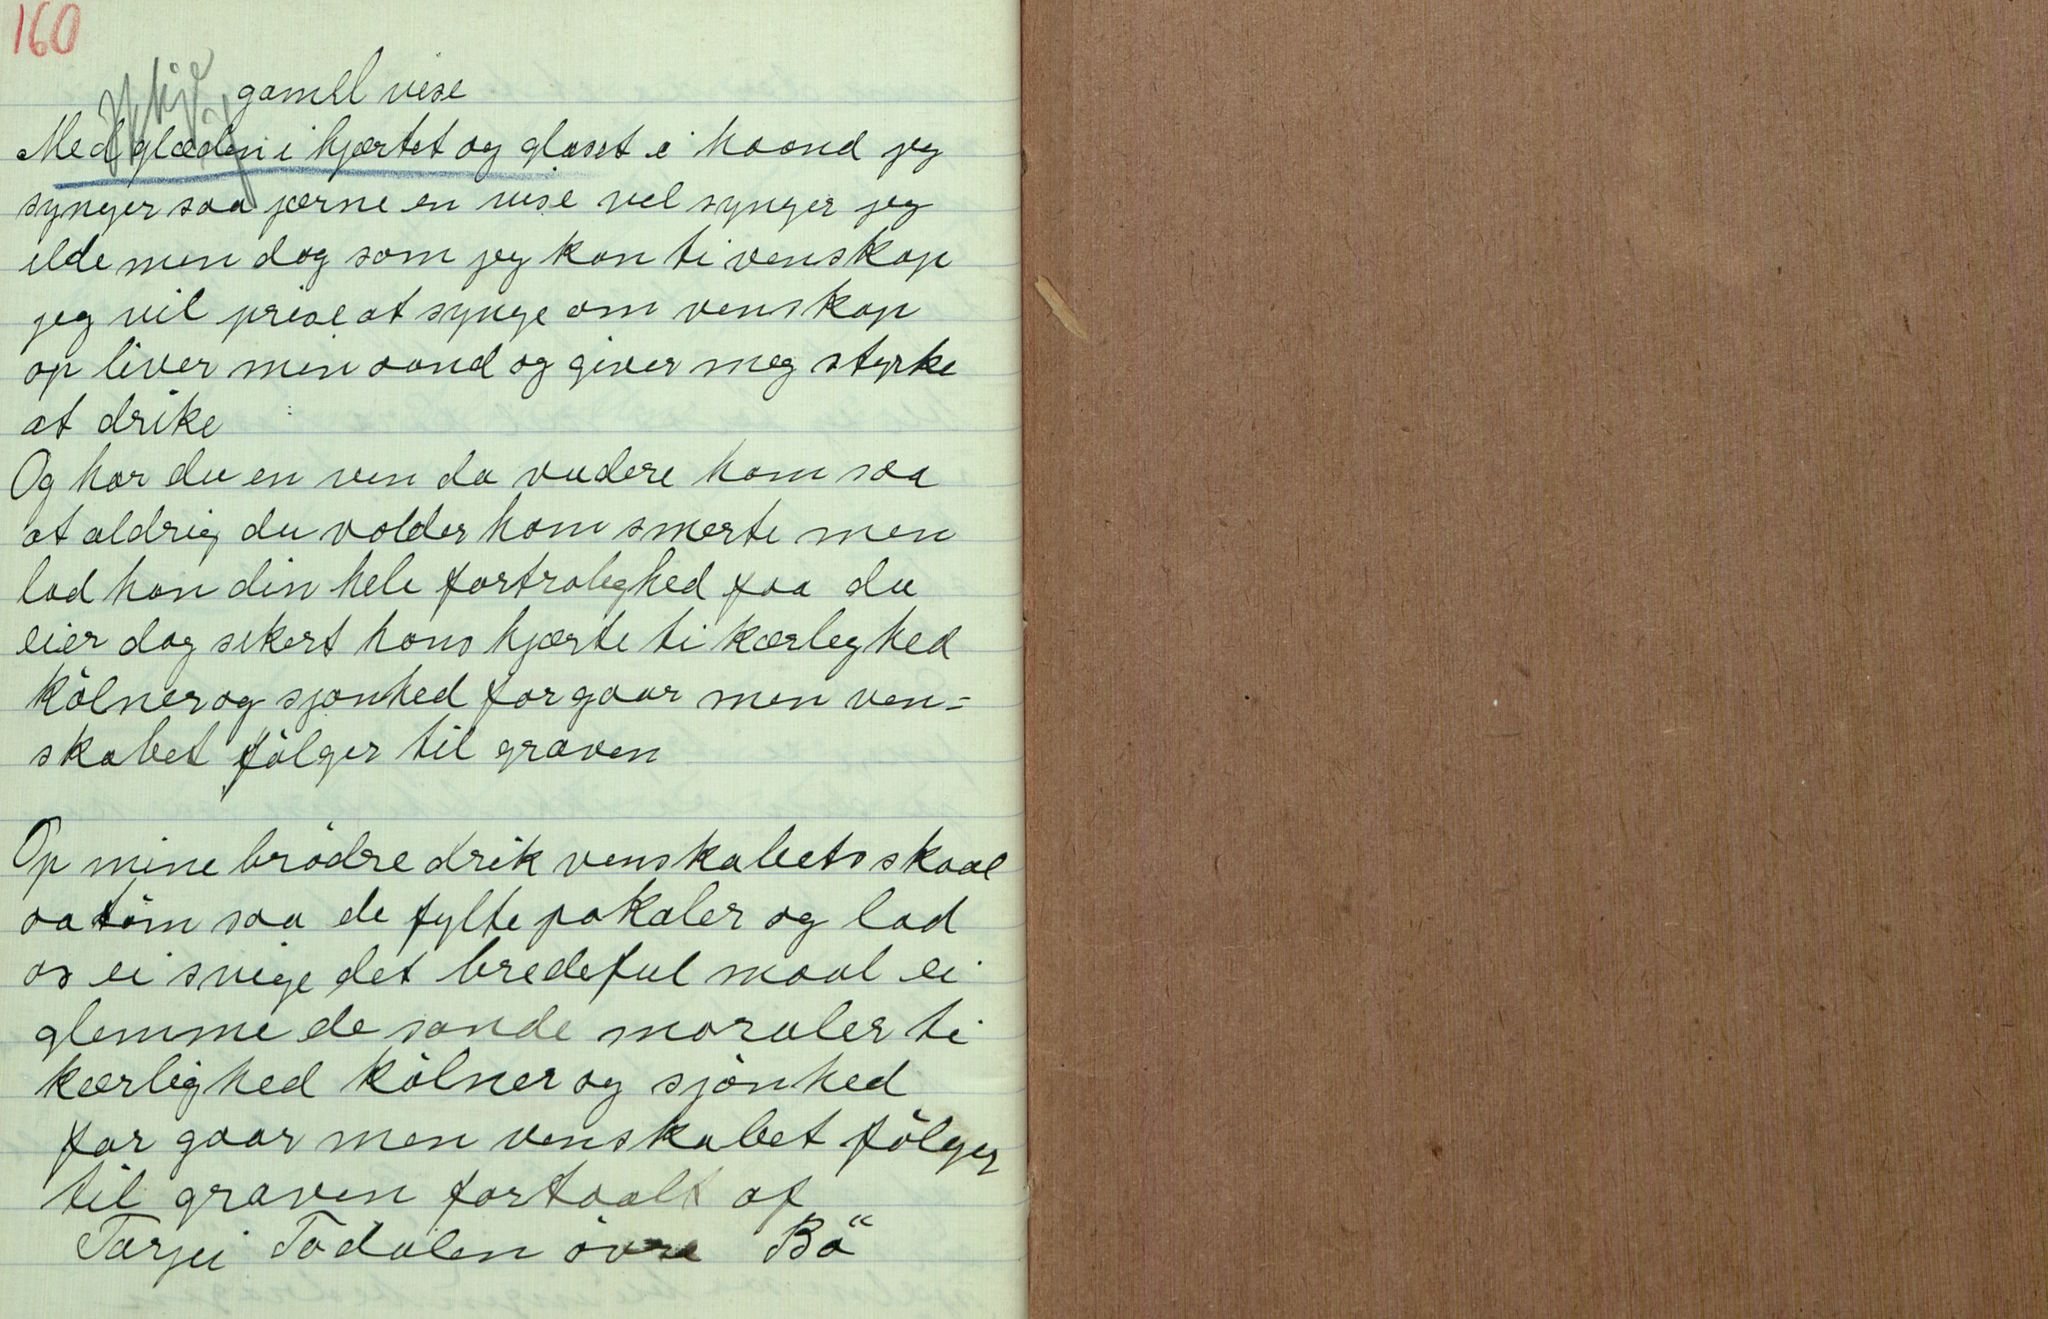 160
gamel vise
Med glæden i hjærtet og glaset i haand jeg
synger saa jærne en vise vel synger jeg
ilde men dog som jeg kan ti venskap
jeg vil prise at synge om venskap
op liver min aand og giver meg styrke
at drike
Og har du en ven da vudere ham saa
at aldrig du volder ham smerte men
lad han din hele fortrolighed faa du
eier dog sikert hans hjærte ti kærleghed
kölner og sjonhed for gaar men ven=
skabet fölger til graven
Op mine brödre drik venskabets skaal
aa töm saa de fylte pokaler og lad
os ei svige det bredeful maal ei
glemme de sande moraler ti
kærlighed kölner og sjönhed
for gaar men venskabet fölger
til graven fortaalt af
Tarjei Todalen övre Bö